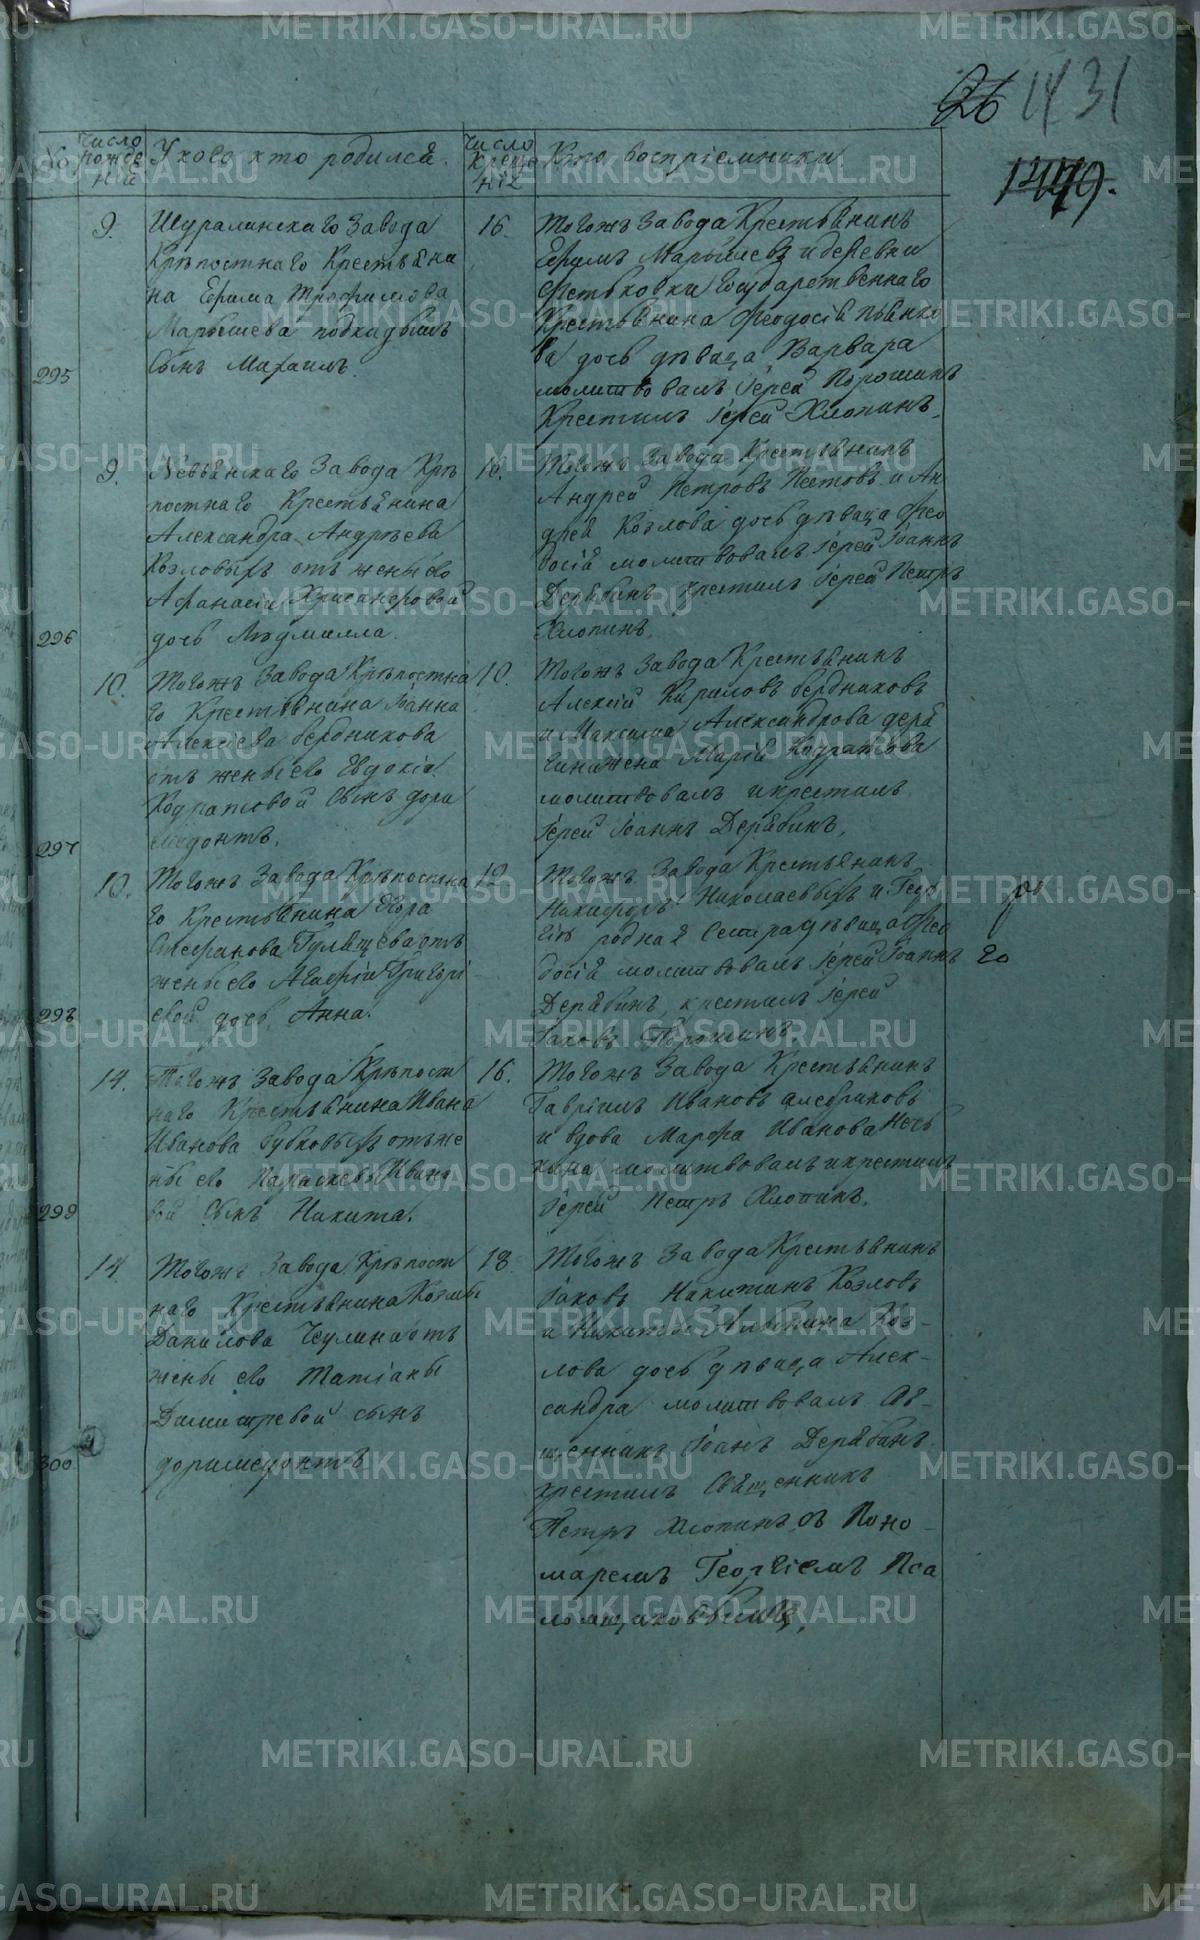 26 1431
1449.
№ Число рожде нія
У кого кто родился.
Число креще нія
Кто воспріемники
295
9.
Шуралинскаго Завода
Крѣпостнаго Крестьяни
на Ефима Трофимова
Марышева подкидышъ
Сынъ Михаилъ.
16.
Тогожъ Завода Крестьянинъ
Ефимъ Марышевъ и деревни
Фетьковки Государственнаго
Крестьянина Феодосія Пьянко
ва дочь дѣвица Варвара
молитвовалъ Іерей Порошинъ
Крестилъ Іерей Хлопинъ.
296
9.
Невьянскаго Завода Крѣ
постнаго Крестьянина
Александра Андрѣева
Козловыхъ отъ жены его
Афанасіи Хрисанфовой
дочь Людмилла.
16.
Тогожъ Завода Крестьянинъ
Андрей Петровъ Пестовъ и Ан
дрея Козлова дочь дѣвица Фео
досія молитвовалъ Іерей Іоаннъ
Дерябинъ Крестилъ Іерей Петръ
Хлопинъ.
297
10.
Тогожъ Завода Крѣпостна
го Крестьянина Іоанна
Алексіева Бердникова
отъ жены его Евдокіи
Кодратовой Сынъ Дори
медонтъ.
10.
Тогожъ Завода Крестьянинъ
Алексій Кириловъ Бердниковъ
и Максима Александрова Деря
гина жена Марія Кодратова
молитвовалъ и крестилъ
Іерей Іоаннъ Дерябинъ,
298
10.
Тогожъ Завода Крѣпостна
го Крестьянина Егора
Стефанова Гулящева отъ
жены его Агафіи Григорі
евой дочь Анна.
12
Тогожъ Завода Крестьянинъ
Никифоръ Николаевыхъ и
родная Сестра дѣвица Фео
досія молитвовалъ Іерей Іоаннъ
Дерябинъ, крестилъ Іерей
Іаковъ Порошинъ
го
299
14.
Тогожъ Завода Крѣпост
наго Крестьянина Ивана
Иванова Бубковыхъ отъ же
ны его Параскевы Ивано
вой Сынъ Никита.
16.
Тогожъ Завода Крестьянинъ
Гавріилъ Ивановъ
и вдова Марфа Иванова
молитвовалъ и крестилъ
Іерей Петръ Хлопинъ.
300
14.
Тогожъ Завода Крѣпост
наго Крестьянина Козмы
Данилова Чсулина отъ
жены его Татіаны
Димитревой сынъ
Доримедонтъ
18
Тогожъ Завода Крестьянинъ
Іаковъ Никитинъ Козловъ
и Никиты Коз-
лова дочь дѣвица Алек-
сандра молитвовалъ Свя-
щенникъ Іоанъ Дерябинъ
крестилъ Священникъ
Петръ Хлопинъ съ Поно-
маремъ Георгіемъ Пса
ломщиковымъ,
METRIKI.GASO-URAL.RU